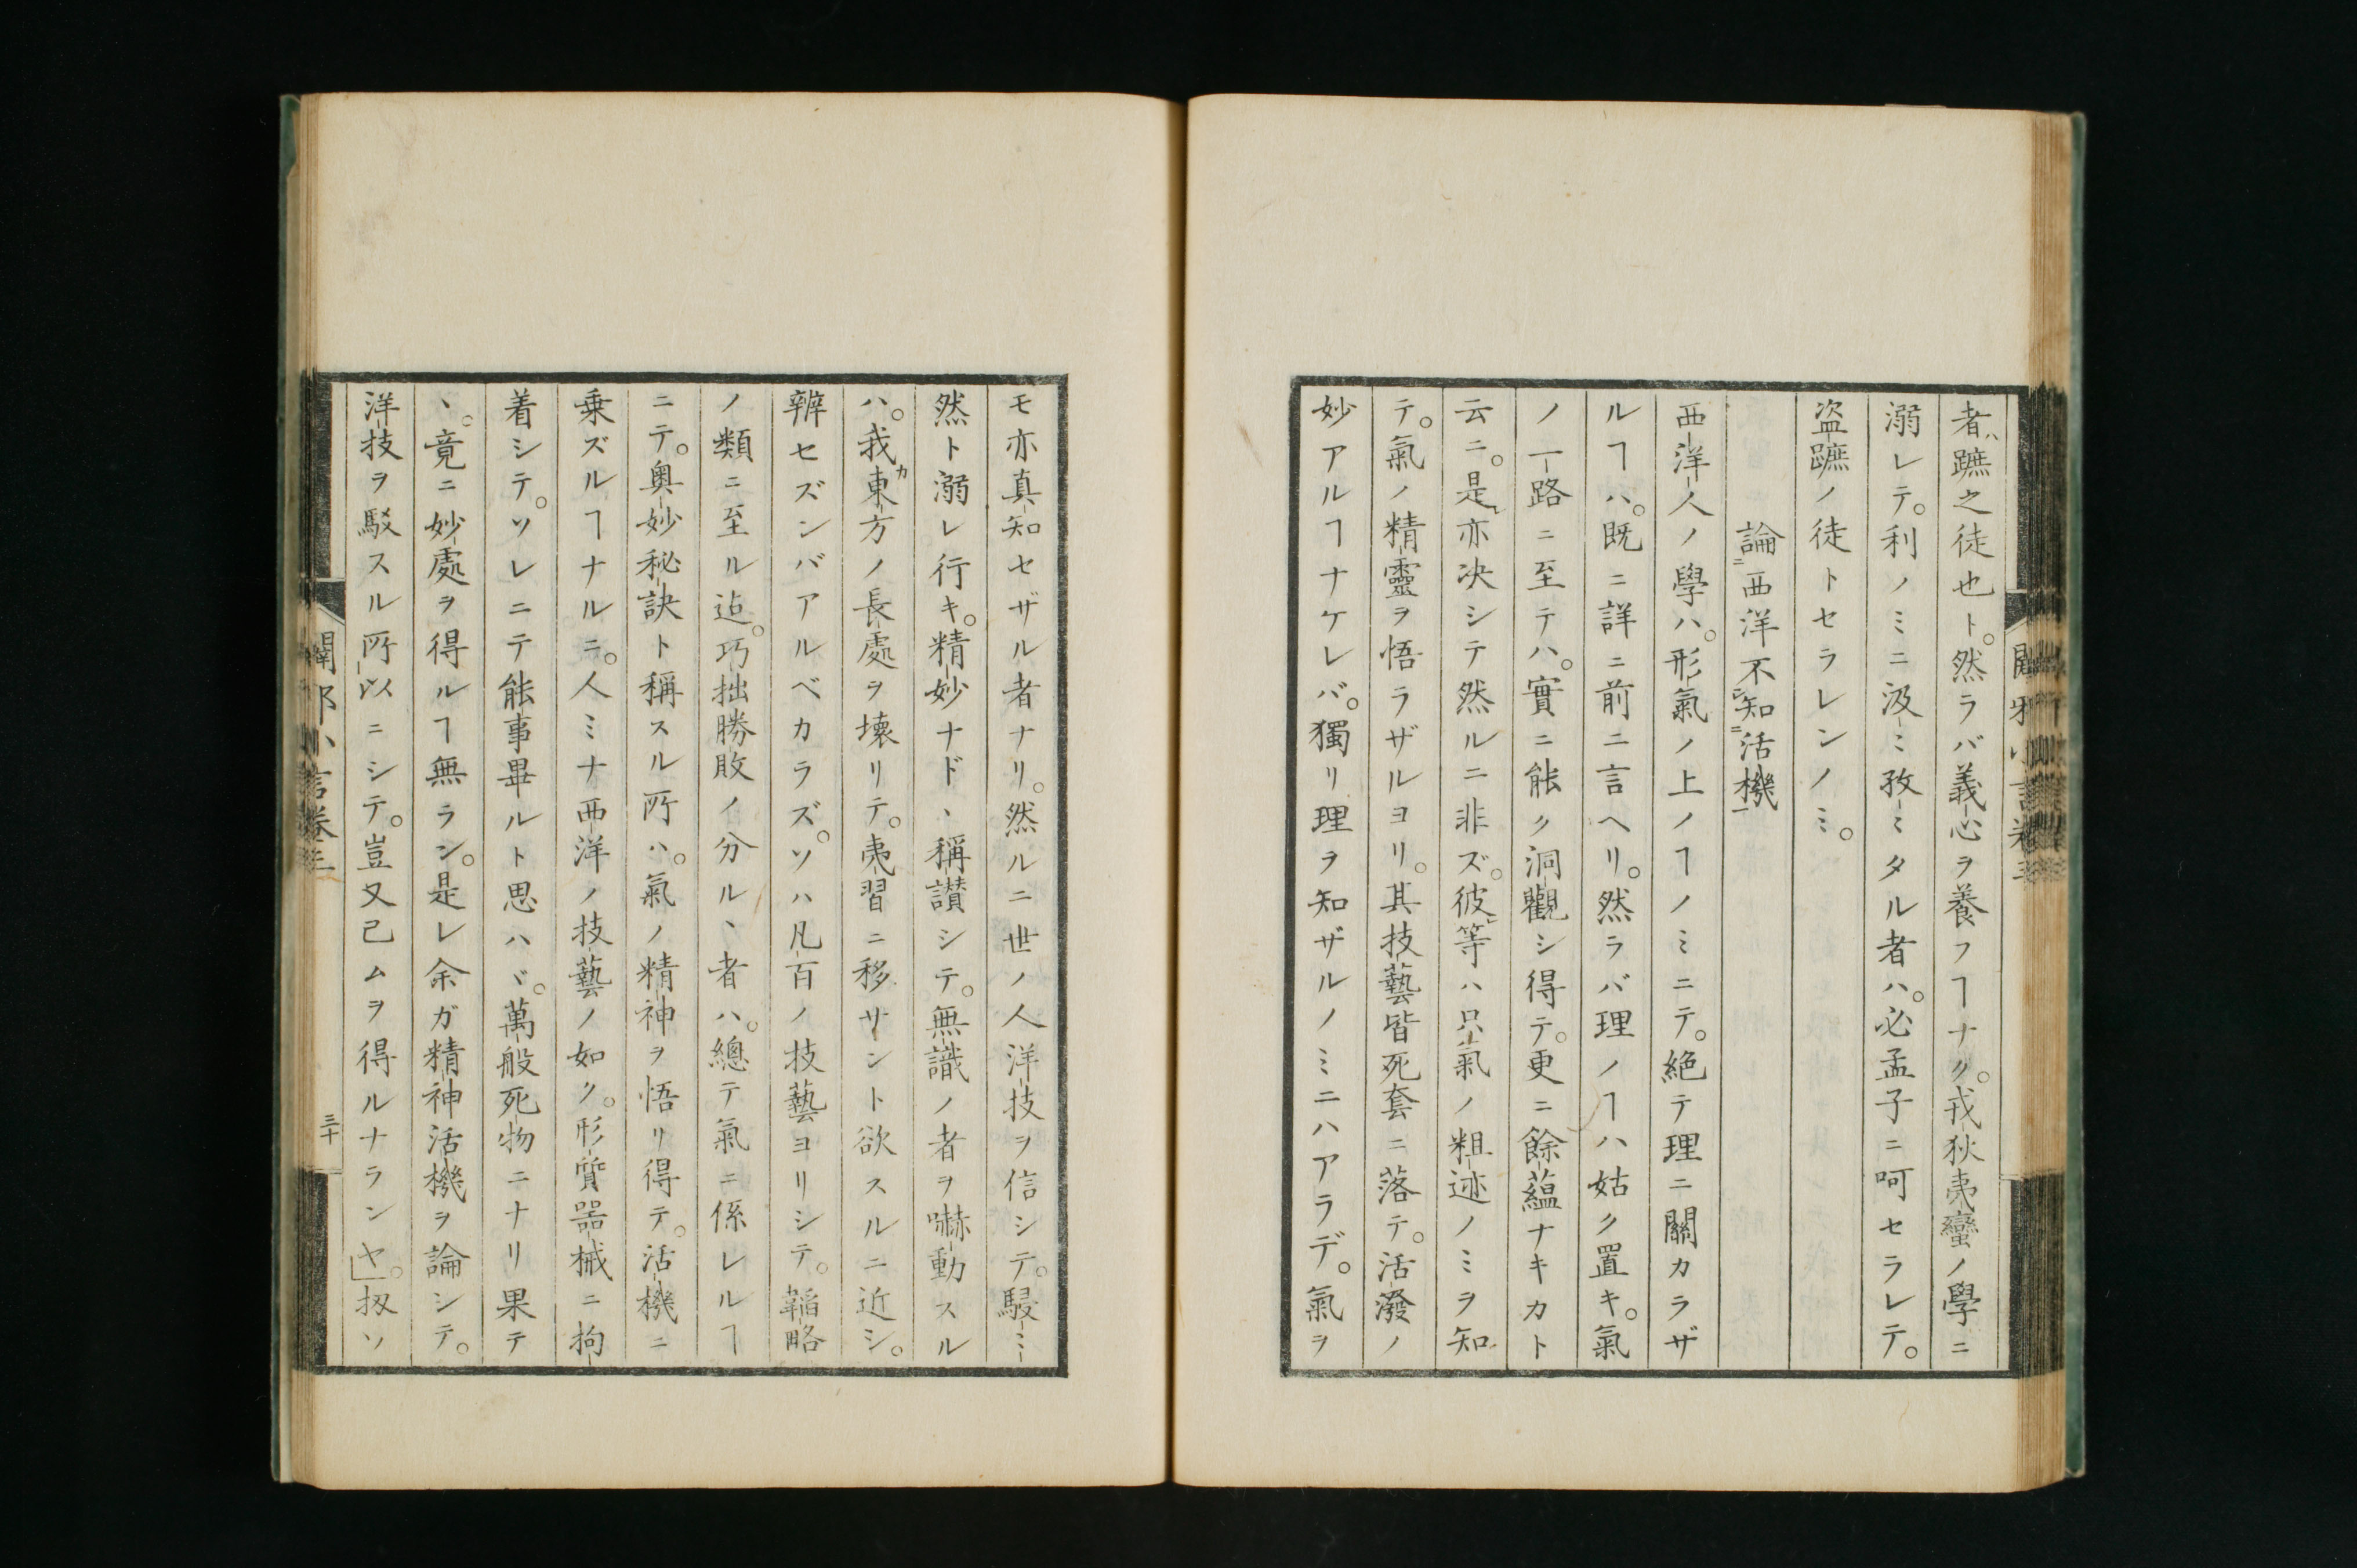 者ハ蹠之徒也ト。然ラバ義心ヲ養フヿナク。戎狄夷蠻ノ學ニ
溺レテ。利ノミニ汲〻孜〻タル者ハ。必孟子ニ呵セラレテ。
盗蹠ノ徒トセラレンノミ。
論西洋不知活機
西洋人ノ學ハ。形氣ノ上ノヿノミニテ。絶テ理ニ關カラザ
ルヿハ。既ニ詳ニ前ニ言ヘリ。然ラバ理ノヿハ姑ク置キ。氣
ノ一路ニ至テハ。實ニ能ク洞觀シ得テ。更ニ餘蘊ナキカト
云ニ。是亦决シテ然ルニ非ズ。彼等ハ只氣ノ粗迹ノミヲ知
テ。氣ノ精靈ヲ悟ラザルヨリ。其技藝皆死套ニ落テ。活潑ノ
妙アルヿナケレバ。獨リ理ヲ知ザルノミニハアラデ。氣ヲ
モ亦真知セザル者ナリ。然ルニ世ノ人洋技ヲ信シテ。駸〻
然ト溺レ行キ。精妙ナドヽ稱讃シテ。無識ノ者ヲ嚇動スル
ハ。我東方ノ長處ヲ壊リテ。夷習ニ移サント欲スルニ近シ。
辨セズンバアルベカラズ。ソハ凡百ノ技藝ヨリシテ。韜略
ノ類ニ至ル迠。巧拙勝敗ノ分ルヽ者ハ。總テ氣ニ係レルヿ
ニテ。奥妙秘訣ト稱スル所ハ。氣ノ精神ヲ悟リ得テ。活機ニ
乗ズルヿナルニ。人ミナ西洋ノ技藝ノ如ク。形質器械ニ拘
着シテ。ソレニテ能事畢ルト思ハヾ。萬般死物ニナリ果テ
ヽ。竟ニ妙處ヲ得ルヿ無ラン。是レ余ガ精神活機ヲ論シテ。
洋技ヲ駁スル所以ニシテ。豈又已ムヲ得ルナランヤ。」扨ソ
闢邪小言卷三
三十